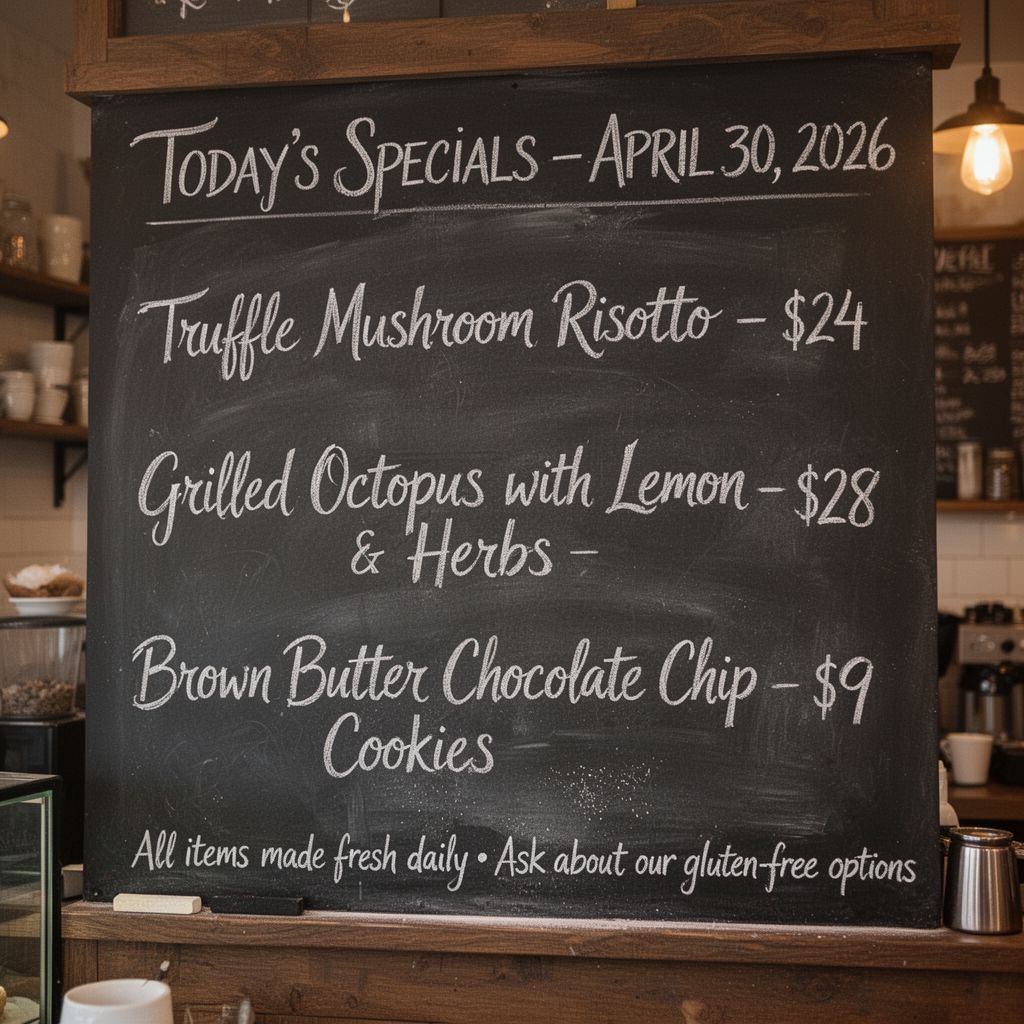 Today's Specials – April 30, 2026
Truffle Mushroom Risotto – $24
Grilled Octopus with Lemon – $28
& Herbs –
Brown Butter Chocolate Chip – $9
Cookies
All items made fresh daily • Ask about our gluten-free options